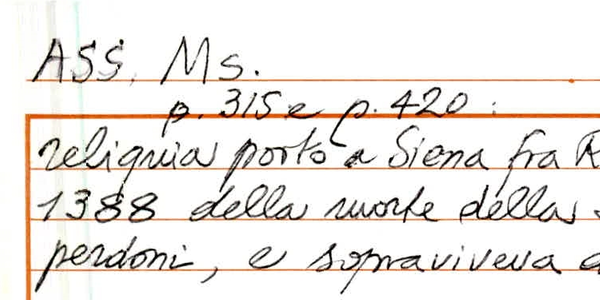 ASS. Ms.
p. 315 e p. 420 :
reliquia portò a Siena fra R
1388 della morte della
perdoni, e sopraviveva a